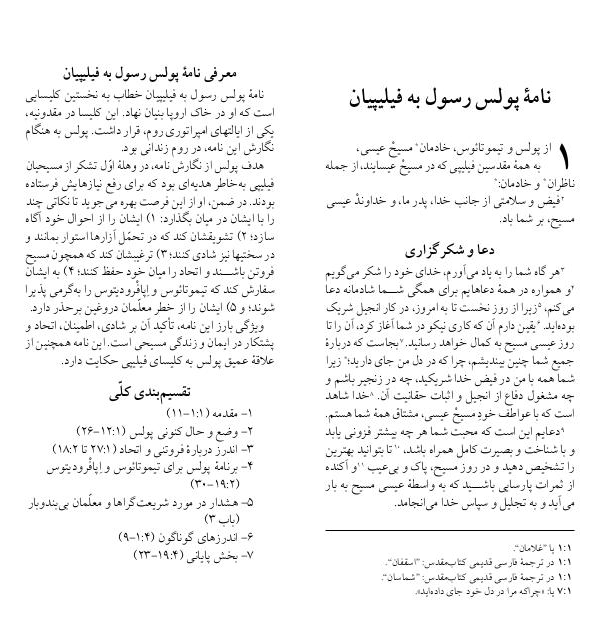 معرفی نامهٔ پولس رسول به فیلیپیان
نامهٔ پولس رسول به فیلیپیان خطاب به نخستین کلیسایی
است که او در خاک اروپا بنیان نهاد. این کلیسا در مقدونیه،
یکی از ایالتهای امپراتوری روم، قرار داشت. پولس به هنگام
نگارش این نامه، در روم زندانی بود.
هدف پولس از نگارش نامه، در وهلهٔ اوّل تشکر از مسیحیان
فیلیپی به‌خاطر هدیه‌ای بود که برای رفع نیازهایش فرستاده
بودند. در ضمن، او از این فرصت بهره می‌جوید تا نکاتی چند
را با ایشان در میان بگذارد: ۱) ایشان را از احوال خود آگاه
سازد؛ ۲) تشویقشان کند که در تحمّل آزارها استوار بمانند و
در سختیها نیز شادی کنند؛ ۳) ترغیبشان کند که همچون مسیح
فروتن باشند و اتحاد را میان خود حفظ کنند؛ ۴) به ایشان
سفارش کند که تیموتائوس و اِپافْرودیتوس را به‌گرمی پذیرا
شوند؛ و ۵) ایشان را از خطر معلّمان دروغین برحذر دارد.
ویژگی بارز این نامه، تأکید آن بر شادی، اطمینان، اتحاد و
پشتکار در ایمان و زندگی مسیحی است. این نامه همچنین از
علاقهٔ عمیق پولس به کلیسای فیلیپی حکایت دارد.
تقسیم‌بندی کلّی
۱- مقدمه (۱:۱-۱۱)
۲- وضع و حال کنونی پولس (۱۲:۱-۲۶)
۳- اندرز دربارهٔ فروتنی و اتحاد (۲۷:۱ تا ۱۸:۲)
۴- برنامهٔ پولس برای تیموتائوس و اِپافْرودیتوس
(۱۹:۲-۳۰)
۵- هشدار در مورد شریعت‌گراها و معلّمان بی‌بندوبار
(باب ۳)
۶- اندرزهای گوناگون (۱:۴-۹)
۷- بخش پایانی (۱۹:۴-۲۳)
نامهٔ پولس رسول به فیلیپیان
۱ از پولس و تیموتائوس، خادمان* مسیحْ عیسی،
به همهٔ مقدسین فیلیپی که در مسیحْ عیسایند، از جمله
ناظران* و خادمان:*
۲فیض و سلامتی از جانب خدا، پدر ما، و خداوندْ عیسی
مسیح، بر شما باد.
دعا و شکرگزاری
۳هر گاه شما را به یاد می‌آورم، خدای خود را شکر می‌گویم
۴و همواره در همهٔ دعاهایم برای همگی شما شادمانه دعا
می‌کنم، ۵زیرا از روز نخست تا به امروز، در کار انجیل شریک
بوده‌اید. ۶یقین دارم آن که کاری نیکو در شما آغاز کرد، آن را تا
روز عیسی مسیح به کمال خواهد رسانید. ۷بجاست که دربارهٔ
جمیع شما چنین بیندیشم، چرا که در دل من جای دارید؛* زیرا
شما همه با من در فیض خدا شریکید، چه در زنجیر باشم و
چه مشغول دفاع از انجیل و اثبات حقانیت آن. ۸خدا شاهد
است که با عواطف خودِ مسیحْ عیسی، مشتاق همهٔ شما هستم.
۹دعایم این است که محبت شما هر چه بیشتر فزونی یابد
و با شناخت و بصیرت کامل همراه باشد، ۱۰تا بتوانید بهترین
را تشخیص دهید و در روز مسیح، پاک و بی‌عیب ۱۱و آکنده
از ثمرات پارسایی باشید که به واسطهٔ عیسی مسیح به بار
می‌آید و به تجلیل و سپاس خدا می‌انجامد.
۱:۱ یا ”غلامان“.
۱:۱ در ترجمهٔ فارسی قدیمی کتاب‌مقدس: ”اسقفان“.
۱:۱ در ترجمهٔ فارسی قدیمی کتاب‌مقدس: ”شماسان“.
۷:۱ یا: «چراکه مرا در دل خود جای داده‌اید».